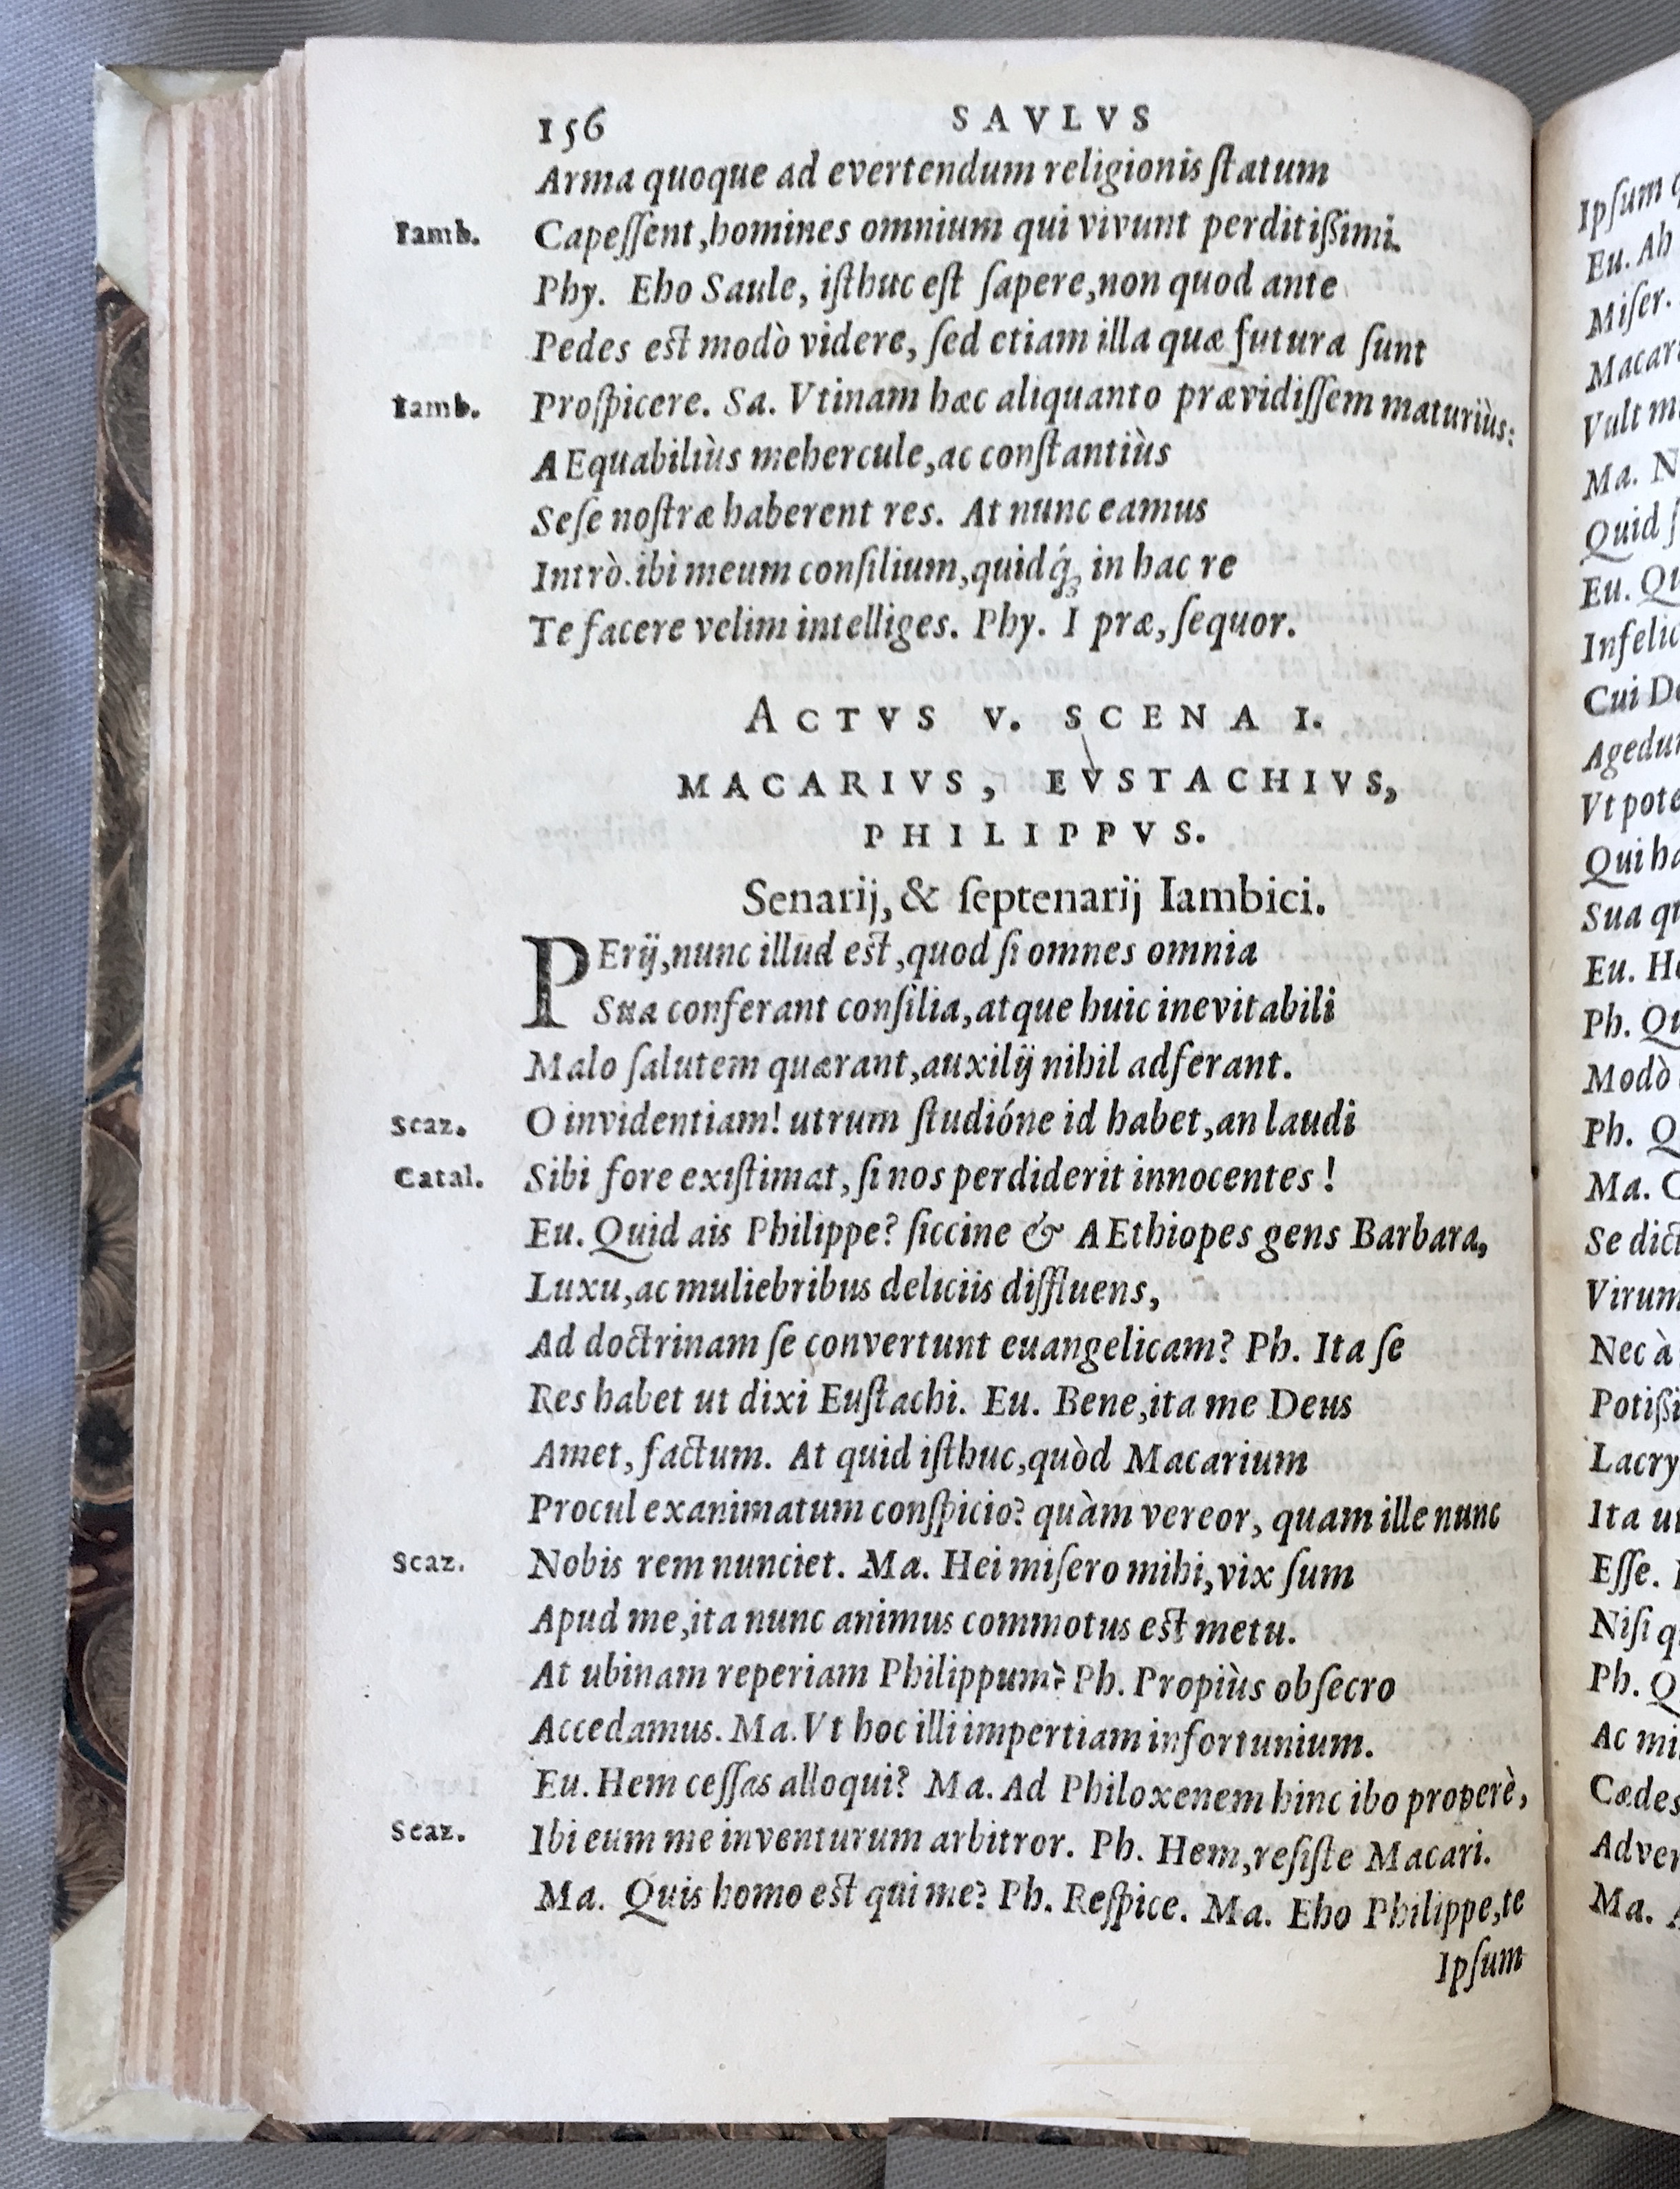 156 SAVLVS
Arma quoque ad evertendum religionis ſtatum
Iamb. Capeſſent,homines omnium qui vivunt perditißimi.
Phy. Eho Saule, iſthuc eſt ſapere,non quod ante
Pedes eſt modò videre, ſed etiam illa quæ futura ſunt
Iamb. Proſpicere. Sa. Vtinam hæc aliquanto prævidiſſem maturiùs:
AEquabiliùs mehercule,ac conſtantiùs
Seſe noſtræ haberent res. At nunc eamus
Intrò.ibi meum conſilium,quidq́ꝫ in hac re
Te facere velim intelliges. Phy. I præ, ſequor.
ACTVS V. SCENA I.
MACARIVS, EVSTACHIVS,
PHILIPPVS.
Senarij, & ſeptenarij Iambici.
PErij,nunc illud eſt,quod ſi omnes omnia
Sua conferant conſilia,atque huic inevitabili
Malo ſalutem quærant,auxilij nihil adferant.
Scaz. O invidentiam! utrum ſtudióne id habet,an laudi
Catal. Sibi fore exiſtimat, ſi nos perdiderit innocentes!
Eu. Quid ais Philippe? ſiccine & AEthiopes gens Barbara,
Luxu,ac muliebribus deliciis diffluens,
Ad doctrinam ſe convertunt euangelicam? Ph. Ita ſe
Res habet ut dixi Euſtachi. Eu. Bene,ita me Deus
Amet, factum. At quid iſthuc,quòd Macarium
Procul exanimatum conſpicio? quàm vereor, quam ille nunc
Scaz. Nobis rem nunciet. Ma. Hei miſero mihi,vix ſum
Apud me,ita nunc animus commotus eſt metu.
At ubinam reperiam Philippum? Ph. Propiùs obſecro
Accedamus. Ma. Vt hoc illi impertiam infortunium.
Eu. Hem ceſſas alloqui? Ma. Ad Philoxenem hinc ibo properè,
Scaz. Ibi eum me inventurum arbitror. Ph. Hem,reſiſte Macari.
Ma. Quis homo eſt qui me? Ph. Reſpice. Ma. Eho Philippe,te
Ipſum
Ipſum
Eu. Ah
Miſer.
Vult
Ma.
Quid
Eu.
Cui
Vt
Qui
Sua
Eu.
Ph.
Modò
Ph.
Ma.
Se
Nec à
Ita
Eſſe.
Niſi
Ph.
Ac
Ma.